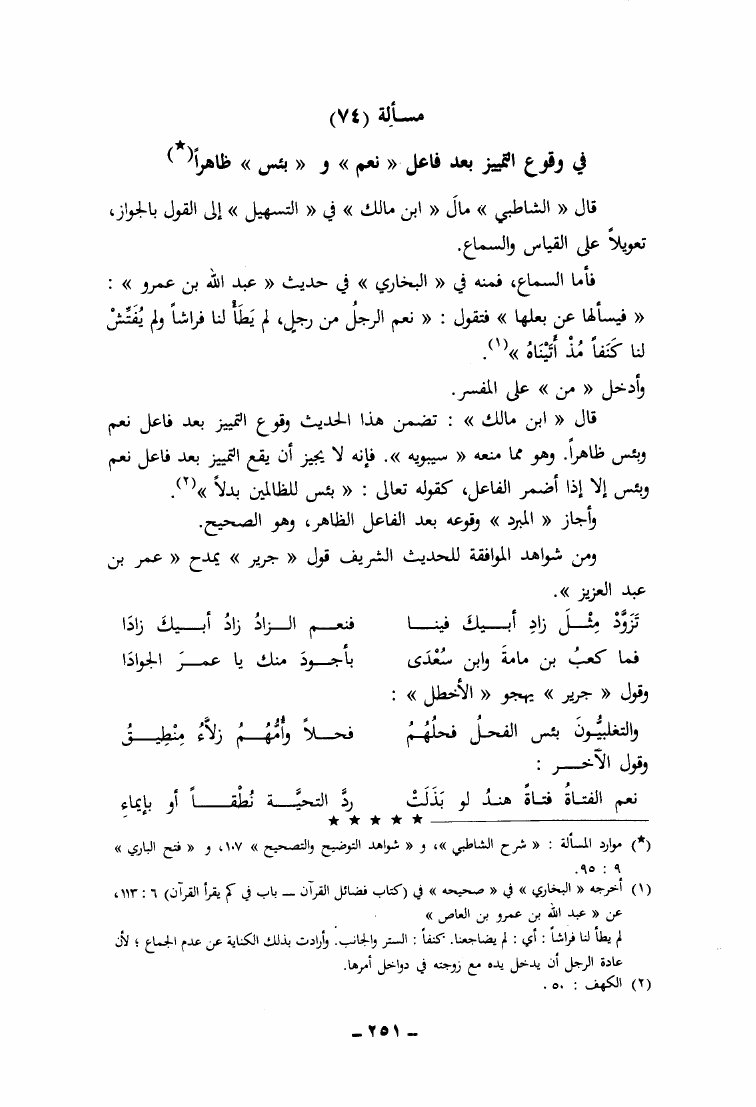 مسألة (٧٤)
في وقوع التمييز بعد فاعل « نعم » و « بئس » ظاهراً(*)
قال « الشاطبي » مالَ « ابن مالك » في « التسهيل » إلى القول بالجواز،
تعويلاً على القياس والسماع.
فأما السماع، فمنه في « البخاري » في حديث « عبد الله بن عمرو » :
« فيسألها عن بعلها » فتقول : « نعم الرجلُ من رجلٍ، لم يَطَأْ لنا فراشاً ولم يُفَتِّشْ
لنا كَنَفاً مُذْ أَتَيْنَاهُ »(١).
وأدخل « من » على المفسر.
قال « ابن مالك » : تضمن هذا الحديث وقوع التمييز بعد فاعل نعم
وبئس ظاهراً. وهو مما منعه « سيبويه ». فإنه لا يجيز أن يقع التمييز بعد فاعل نعم
وبئس إلا إذا أضمر الفاعل، كقوله تعالى : « بئس للظالمين بدلاً »(٢).
وأجاز « المبرد » وقوعه بعد الفاعل الظاهر، وهو الصحيح.
ومن شواهد الموافقة للحديث الشريف قول « جرير » يمدح « عمر بن
عبد العزيز ».
تَزَوَّدْ مِثْلَ زادِ أبيكَ فينا فنعم الزادُ زادُ أبيكَ زادَا
فما كعبُ بن مامةَ وابن سُعْدَى بأجودَ منك يا عمرَ الجوادَا
وقول « جرير » يهجو « الأخطل » :
والتغلبيُّونَ بئس الفحلُ فحلُهُمُ فحلاً وأُمُّهُمُ زلاَّءُ مِنْطِيقُ
وقول الآخر :
نعم الفتاةُ فتاةً هندُ لو بَذَلَتْ ردَّ التحيَّة نُطْقاً أو بإيماءِ
★ ★ ★ ★ ★
(*) موارد المسألة : « شرح الشاطبي »، و « شواهد التوضيح والتصحيح » ١٠٧، و « فتح الباري »
٩ : ٩٥.
(١) أخرجه « البخاري » في « صحيحه » في (كتاب فضائل القرآن – باب في كم يقرأ القرآن) ٦ : ١١٣،
عن « عبد الله بن عمرو بن العاص »
لم يطأ لنا فراشاً : أي : لم يضاجعنا. كنفاً : الستر والجانب. وأرادت بذلك الكناية عن عدم الجماع ؛ لأن
عادة الرجل أن يدخل يده مع زوجته في دواخل أمرها.
(٢) الكهف : ٥٠ .
– ٢٥١ –